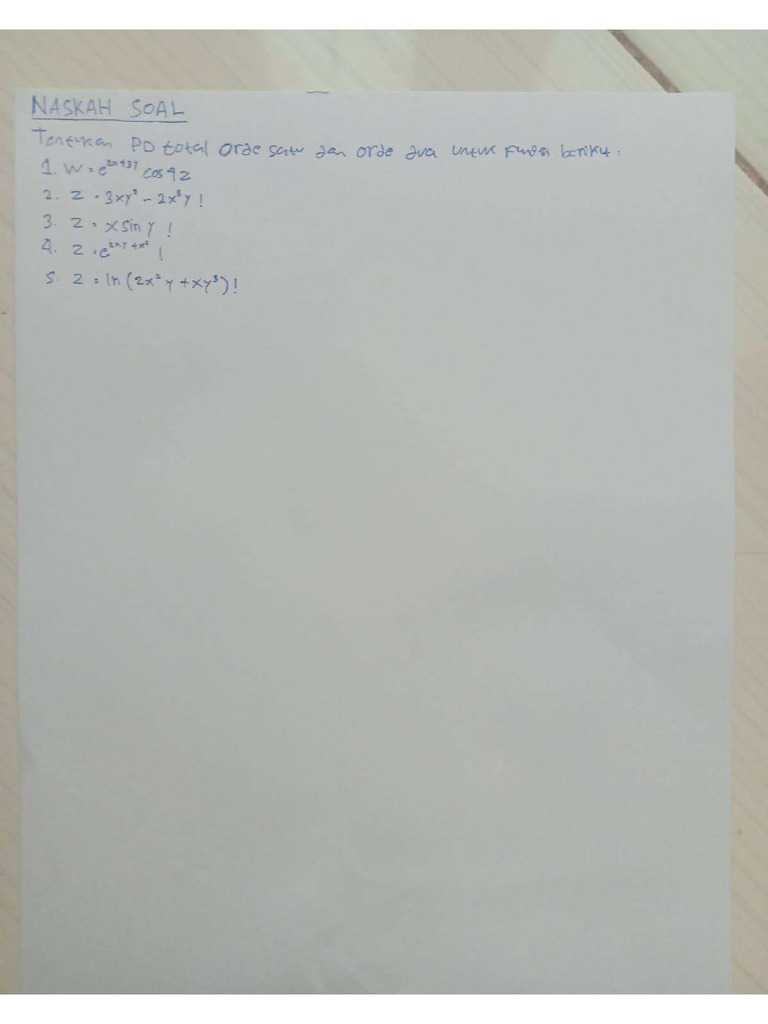 NASKAH SOAL
Tentukan PD total orde satu dan orde dua untuk fungsi berikut :
1. W = e^{2x+3y} cos 4z
2. z = 3xy³ - 2x³y !
3. z = x sin y !
4. z = e^{2xy+x²} !
5. z = ln (2x²y + xy³) !